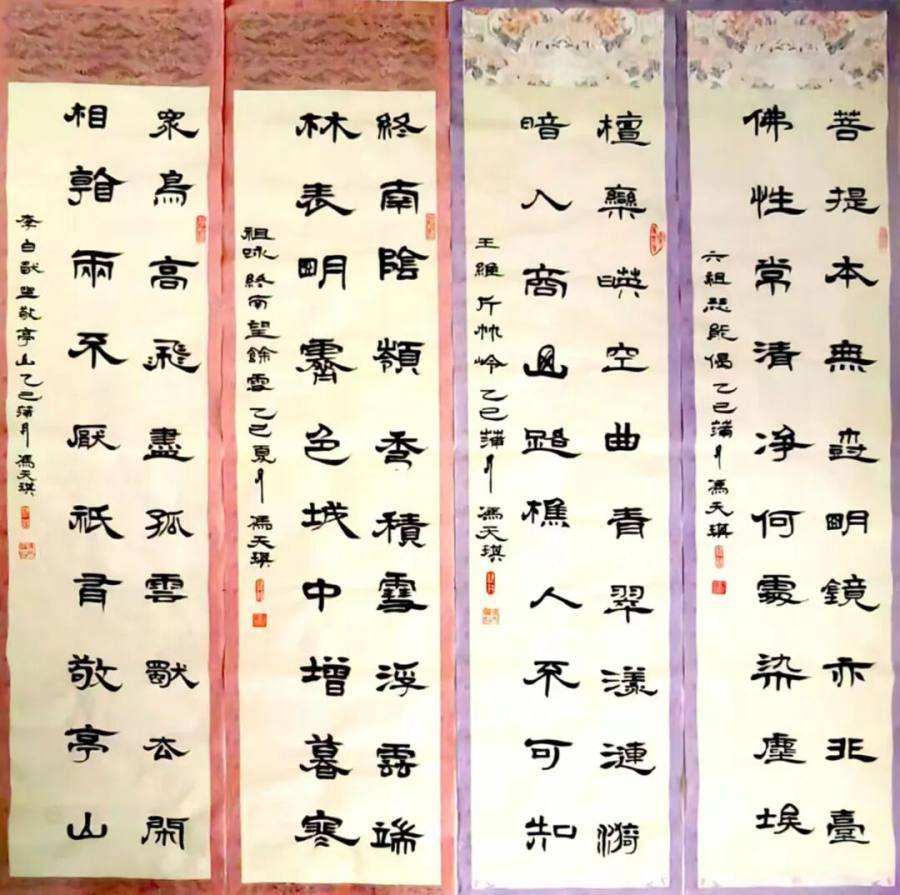 菩提本無尌明鏡亦非臺
佛性常清淨何處染塵埃
六祖慧能偈乙巳蒲月馮天琪
檀欒暎空曲青翠漾漣漪
暗入商山路樵人不可知
王維斤竹岭乙巳蒲月馮天琪
終南陰嶺秀積雪浮雲端
林表明霽色城中增暮寒
祖咏終南望餘雪乙巳夏月馮天琪
眾鳥高飛盡孤雲獨去閑
相看兩不厭祇有敬亭山
李白獨坐敬亭山乙巳蒲月馮天琪